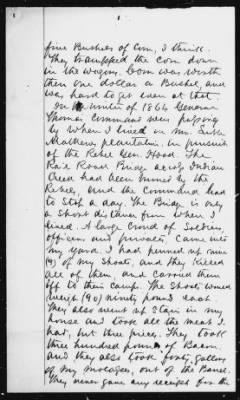 five Bushels of Corn, I think.
They trampped the corn down
in the wagon. Corn was worth
then one dollar a Bushel, and
was hard to get even at that.
In the winter of 1864 General
Thomas Command was passing
by where I lived on Mr. Luke
Mathews plantation, in pursuit
of the Rebel Gen. Hood. The
Rail Road Bridge across Indian
Creek had been burned by the
Rebels, and the Command had
to stop a day. The Bridge is only
a short distance from where I
lived. A large crowd of Soldiers,
officers and privates, came into
my yard. I had penned up nine
(9) of my Shoats, and they killed
all of them, and carried them
off to their camp. The Shoats would
weigh (90) ninety pounds each.
They also went up Stairs in my
house and took all the meat I
had, but three pieces. They took
three hundred pounds of Bacon.
and they also took forty gallons
of my molasses, out of the Barrel.
They never gave any receipt for the